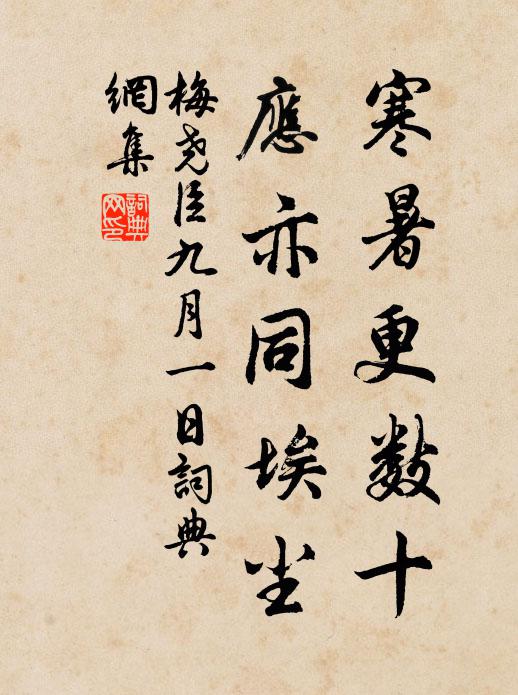 寒暑更数十
應亦同埃尘
梅尧臣九月一日詞典
網集
詞典
网印